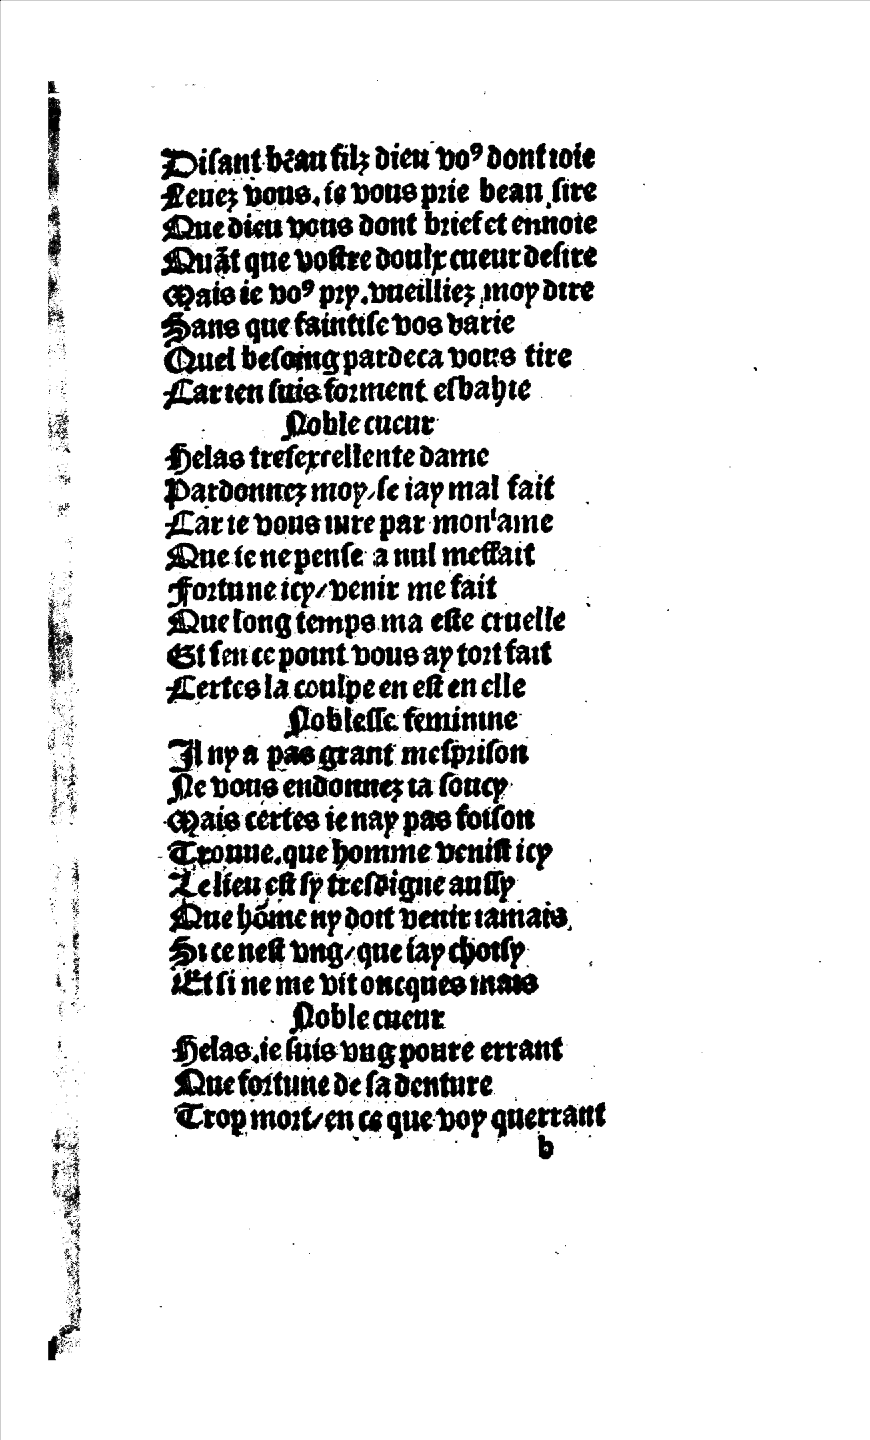 Disant beau filz dieu vo⁹ dont ioie
Leuez vous. ie vous prie beau sire
Que dieu vous dont brief et ennoie
Quāt que vostre doulx cueur desire
Mais ie vo⁹ pry. vueilliez moy dire
Sans que faintise vos varie
Quel besoing pardeca vous tire
Car ien suis forment esbahie
Noble cueur
Helas tresexcellente dame
Pardonnez moy/se iay mal fait
Car ie vous iure par mon ame
Que ie ne pense a nul meffait
Fortune icy/venir me fait
Que long temps ma este cruelle
Et sen ce point vous ay tort fait
Certes la coulpe en est en elle
Noblesse feminine
Il ny a pas grant mesprison
Ne vous endonnez ia soucy
Mais certes ie nay pas foison
Trouue. que homme venist icy
Le lieu est sy tresdigne aussy
Que hōme ny doit venir iamais
Si ce nest vng/que iay choisy
Et si ne me vit oncques mais
Noble cueur
Helas. ie suis vng poure errant
Que fortune de sa denture
Trop mort/en ce que voy querrant
b